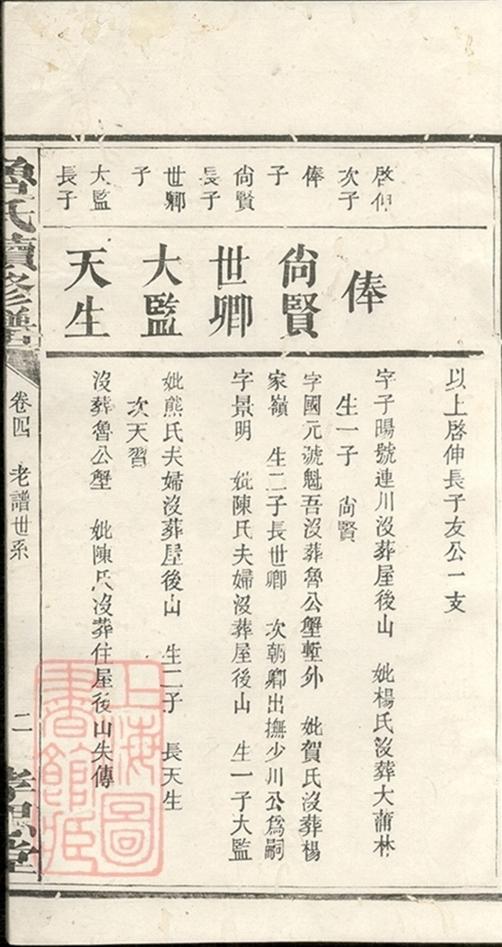 以上啓伸長子友公一支
啓伸
次子
俸
字子暘號連川沒葬屋後山　妣楊氏沒葬大莆林
生一子　尙賢
俸
子
尙賢
字國元號魁吾沒葬魯公壟塹外　妣賀氏沒葬楊
家嶺　生二子長世卿　次朝卿出撫少川公爲嗣
尙賢
長子
世卿
字景明　妣陳氏夫婦沒葬屋後山　生一子大監
世卿
子
大監
妣熊氏夫婦沒葬屋後山　生二子　長天生
次天習
大監
長子
天生
沒葬魯公壟　妣陳氏沒葬住屋後山失傳
魯氏續修譜
卷四　老譜世系
二
孝思堂
上海圖
書館藏